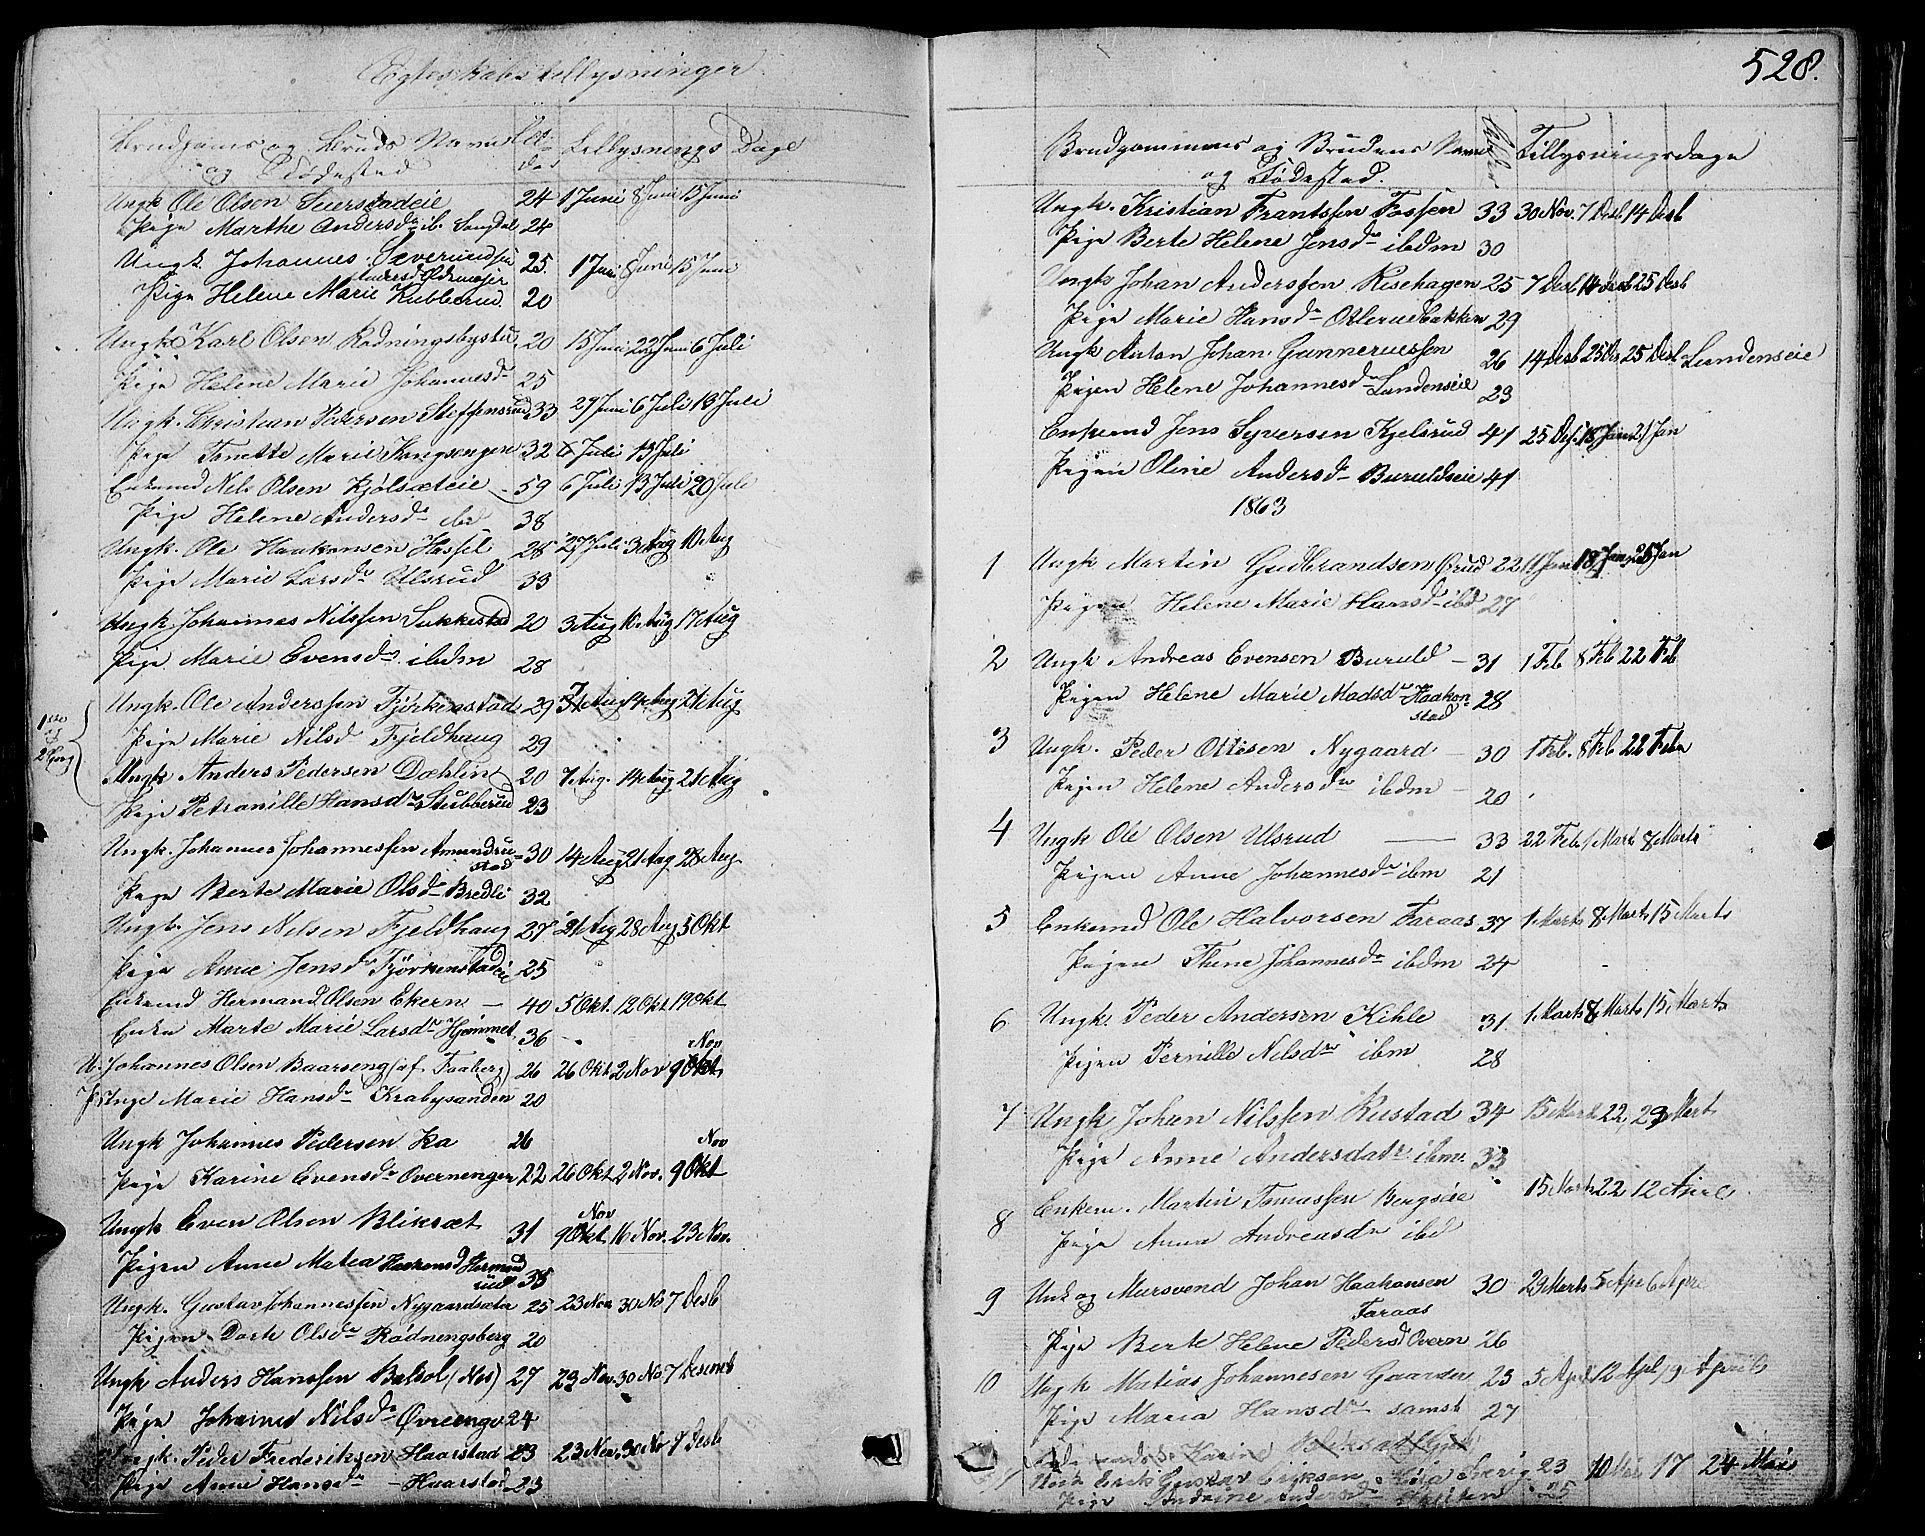 Egteskabstillysninger
Brudgoms og Bruds Navn Al- Tillysnings Dage
og Fødested der
Ungk Ole Olsen Seierstadeie 24 1 Juni 8 Juni 15 Juni
Pige Marthe Andersdr ib. 24
Ungk. Johannes Syverindsen 25. 1 Juni 8 Juni 15 Juni
Pige Helene Marie Kubberud 20
Ungk Karl Olsen Rødningsbystu 20 15 Juni 22 Juni 6 Juli
Pige Helene Marie Johannesdr 25
Ungk. Christian Pedersen Steffensrud 33 29 Juni 6 Juli 13 Juli
Pige Fanette Marie Kongsengen 32 6 Juli 13 Juli
Enkemd Nils Olsen Kjølsæteie 59 6 Juli 13 Juli 20 Juli
Pige Helene Andersdr ibr 38
Ungk. Ole Haakonsen Hassel 28 27 Juli 3 Aug 10 Aug
Pige Marie Larsdr Ulsrud 33
Ungk. Johannes Nilssen Sukkestad 20 3 Aug 10 Aug 17 Aug
Pige Marie Evensdr ibdm 28
Ungk. Ole Anderssen Fjørkenstad 29 7 Aug 14 Aug 21 Aug
1ste og 2 Gang
Pige Marie Nilsd Fjeldhaug 29
Ungk Anders Pedersen Dæhlin 20 7 Aug. 14 Aug 21 Aug
Pige Petronille Hansdr Stubberud 23
Ungk. Johannes Johannessen Amundru- 30 14 Aug 21 Aug 28 Aug
stad
Pige Berte Marie Olsdr Bredli 32
Ungk. Jens Nilsen Fjeldhaug 27 21 Aug 28 Aug 5 Okt
Pige Anne Jensdr Fjørkenstadeie 25
Enkemd Hermand Olsen Ekern — 40 5 Okt. 12 Okt 19 Okt
Enke Marte Marie Larsdr Hjemmet 36
Nov
U. Johannes Olsen Baarseng (af Faaberg) 26 26 Okt 2 Nov 9 Okt
P. Inge Marie Hansdr Krabysanden 20
Ungk Johannes Pedersen Ka 26 Nov
Pige Karine Evensdr Overnenger 22 26 Okt 2 Nov. 9 Okt
Nov
Ungk Even Olsen Bliksæt 31 9 Okt 16 Nov. 23 Nov.
Pigen Anne Matea Haakensd Hermand
rud 35
Ungk. Gustav Johannessen Nygaardsæter 25 23 Nov 30 No 7 Desb
Pigen Dorte Olsdr Rødningsberg 20
Ungk Anders Hanssen Balbol (Nes) 27 23 Nov. 30 No 7 Desemb
Pige Johanne Nilsdr Øvreenge 24
Ungk. Peder Frederiksen Haarstad 23 23 Nov. 30 No 7 Desb
Pige Anne Hansdr — Haarstad 23
528.
Brudgommens og Brudens Navne Alder Tillysningsdage
og Fødested.
Ungk. Kristian Frantssen Fossen 33 30 Nov. 7 Desb 14 Desb
Pige Berte Helene Jensdr ibdm 30
Ungk Johan Anderssen Risehagen 25 7 Desb 14 Desb 25 Desb
Pige Marie Hansdr Oslerudbakken 29
Ungk Anton Johan Gunnerussen 26 14 Desb 25 Des 25 Desb Lundenseie
Pigen Helene Johannesdr Lundenseie 23
Enkemd Jens Syversen Kjelsrud 41 25 Des. 18 Jan 21 Jan
Pigen Oline Andersdr Buruldseie 41
1863
1 Ungk Martin Gudbrandsen Ørud 22 11 Jan 18 Jan 25 Jan
Pigen Helene Marie Hansd ibd 27
2 Ungk Andreas Evensen Buruld — 31 1 Feb 8 Feb 22 Feb
Pigen Helene Marie Madsdr Haakon- 28
stad
3 Ungk. Peder Ottesen Nygaard — 30 1 Feb. 8 Feb 22 Febr
Pigen Helene Andersdr ibdm — 20
4 Ungk Ole Olsen Ulsrud — 33 22 Feb. 1 Mart 8 Marts
Pigen Anne Johannesdr ibm 21
5 Enkemd Ole Halvorsen Faraas 37 1 Marts 8 Marts 15 Marts
Pigen Thine Johannesdr ibdm 24
6 Ungk. Peder Andersen Kihle 31 1 Marts 8 Marts 15 Marts
Pigen Pernille Nilsdr ibm 28
7 Ungk Johan Nilssen Rustad 34 15 Marts 22, 29 Mart
Pige Anne Andersdatr ibm. 33
8 Enkem. Martin Tomassen Bergseie 15 Marts 22 12 April
Pige Anna Andreasdr ibd
9 Unk og Mursvend Johan Haakonsen 30 29 Marts 5 Apr 6 Apr
Faraas
Pige Berte Helene Pedersd Overn 26
10 Ungk Matias Johannesen Gaarder 23 5 April 12 Apl 19 April
Pige Maria Hansdr samst 27
Karine Bliksæt
Unk Erik Gustav Erikson Sverig 23 10 Mai 17 24 Mai
Pige Andrine Andersdr 25